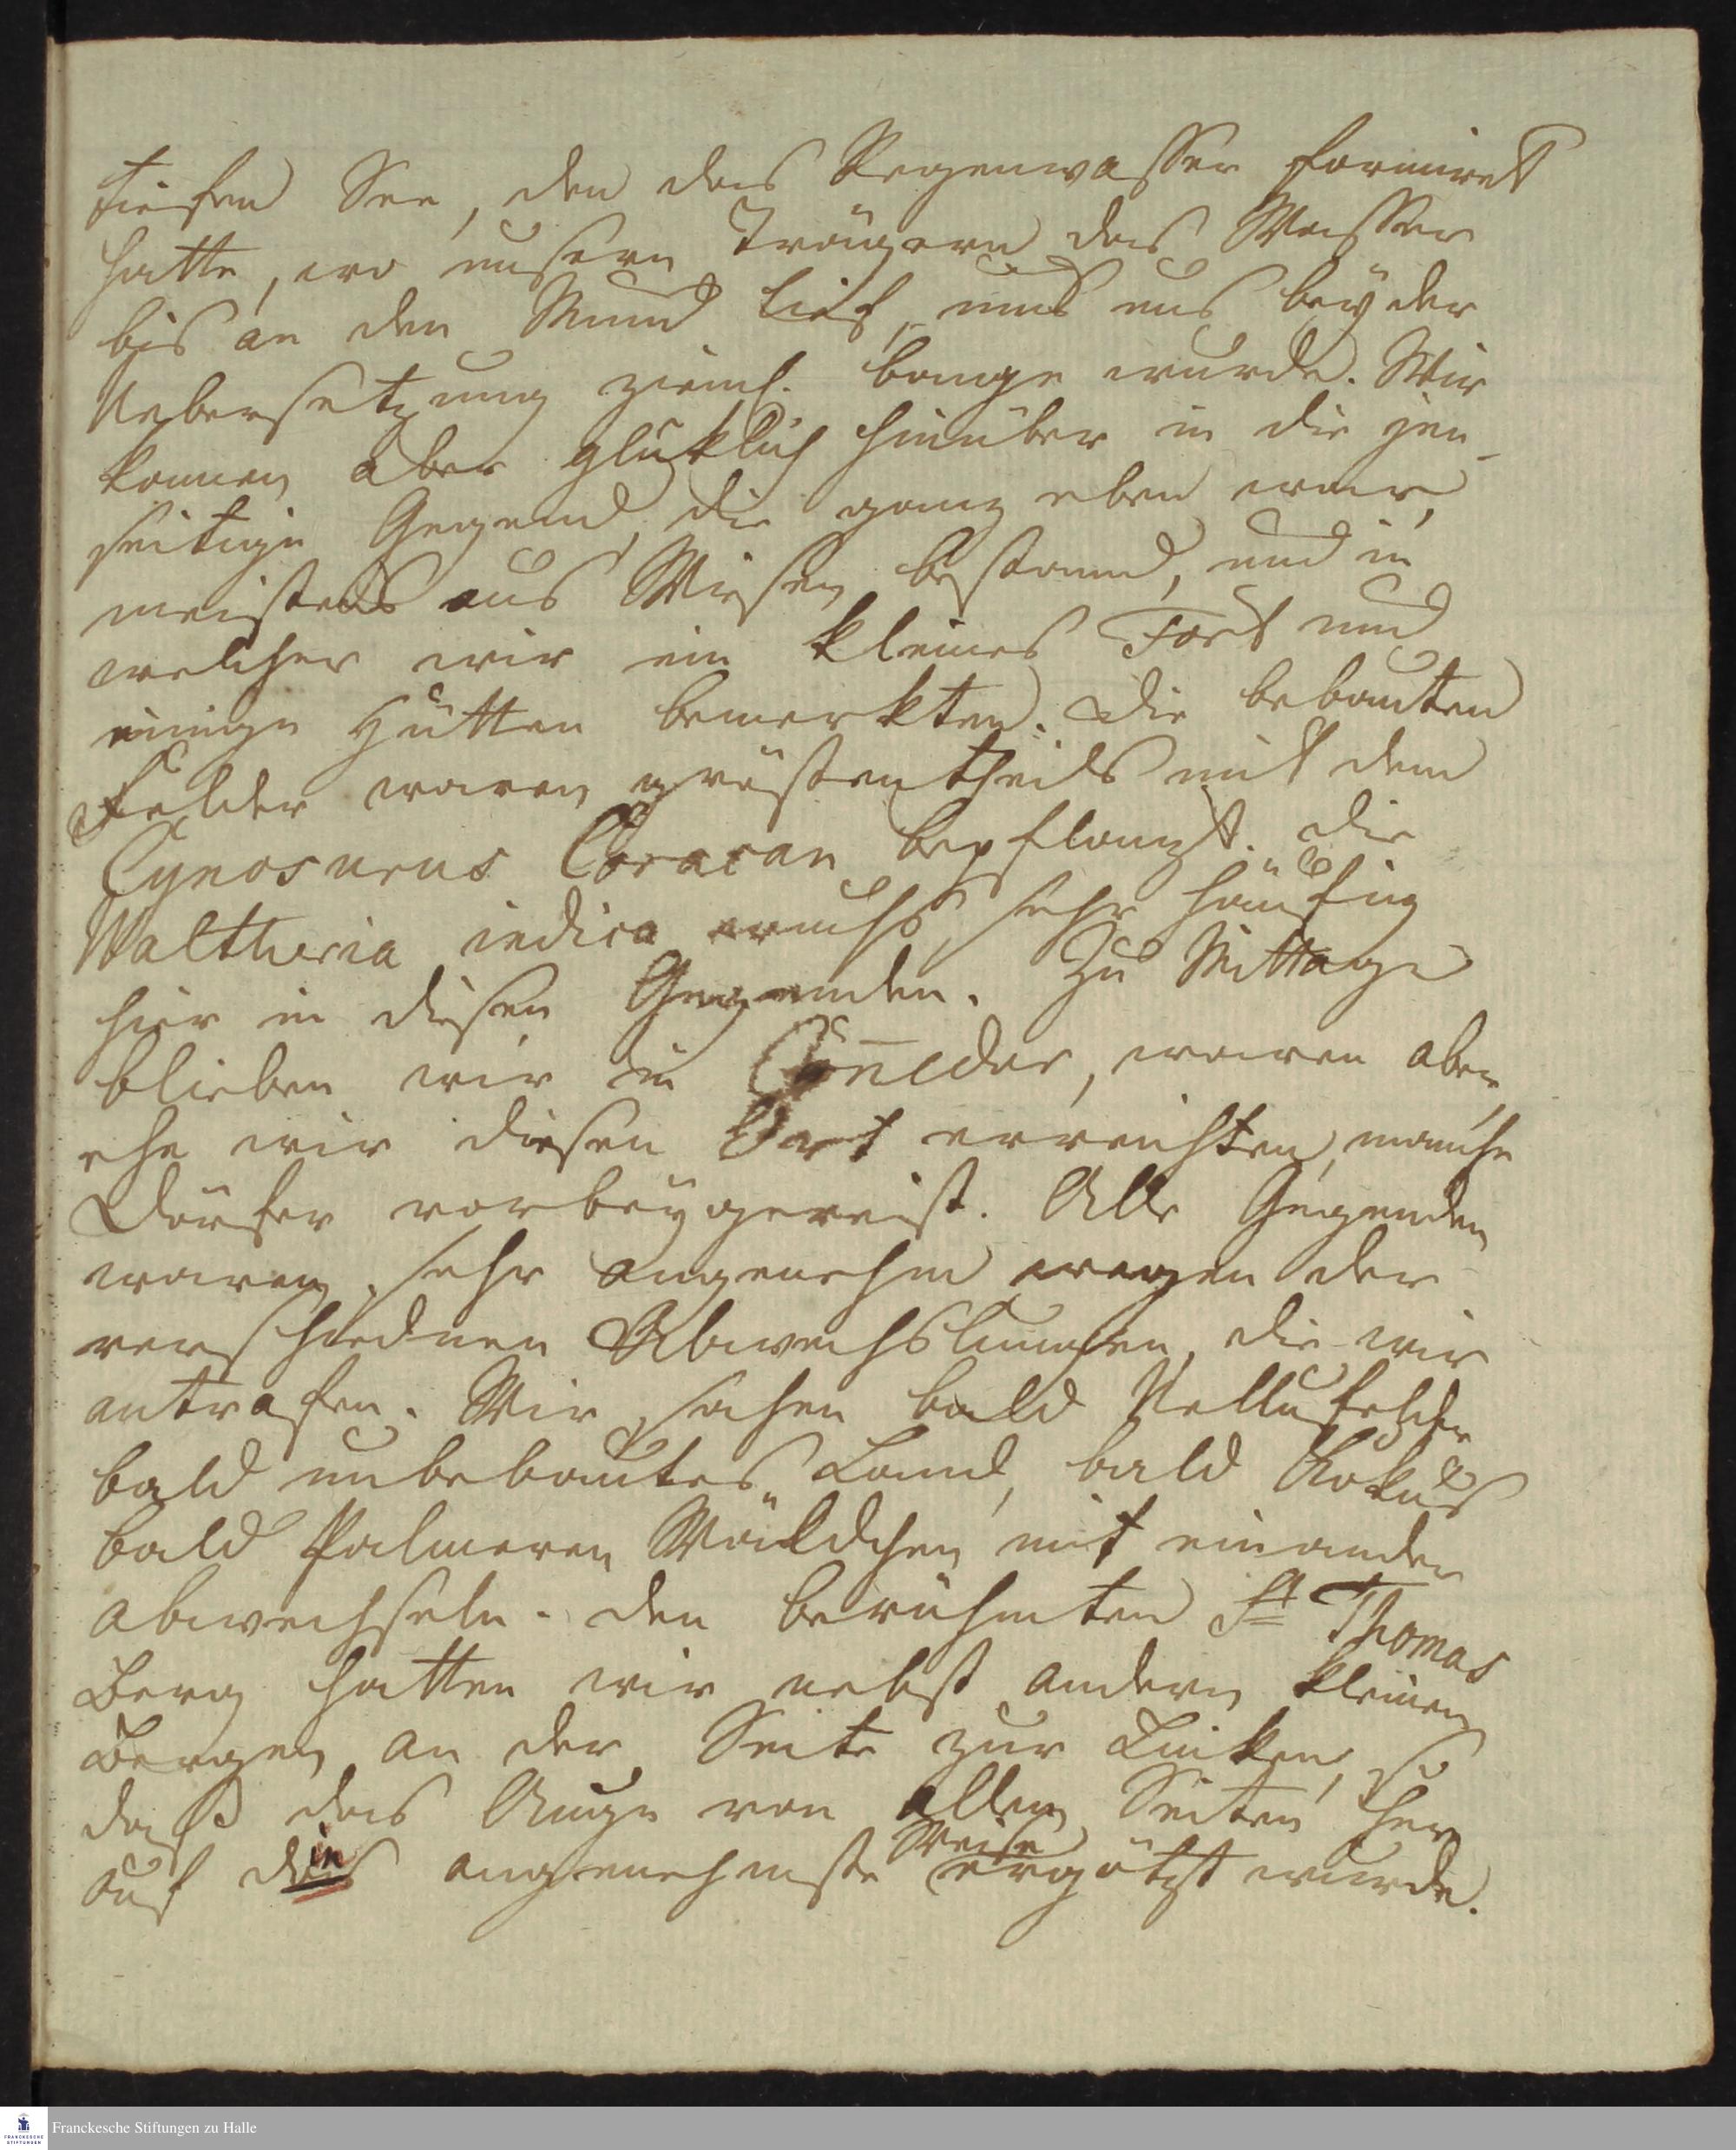 tiefen See, den das Regenwasser formiret
hatte, wo unsern Trägern das Wasser
bis an den Mund lief, und uns bey der
Uebersetzung zieml. bange wurde. Wir
kamen aber glüklich hinüber in die jen-
seitige Gegend, die ganz eben war,
meistens aus Wiesen bestand, und in
welcher wir ein kleines Fort und
einige Hütten bemerkten. Die bebauten
Felder waren gröstentheils mit dem
Cynosurus Coracan bepflanzt. Die
Waltheria indica wuchs sehr häufig
hier in diesen Gegenden. Zu Mittage
blieben wir in, waren aber,
ehe wir diesen Ort erreichten, manche
Dörfer vorbeygereist. Alle Gegenden
waren sehr angenehm wegen der
verschiednen Abwechslungen, die wir
antrafen. Wir sahen bald Nellufelder
bald unbebautes Land, bald Kokus
bald Palmeren Wäldchen mit einander
abwechseln. Den berühmten St Thomas
Berg hatten wir nebst andern kleinen
Bergen an der Seite zur Linken, so
daß das Auge von allen Seiten her
auf die angenehmste Weise ergötzt wurde.
Franckesche Stiftungen zu Halle
FRANCKESCHE
STIFTUNGEN